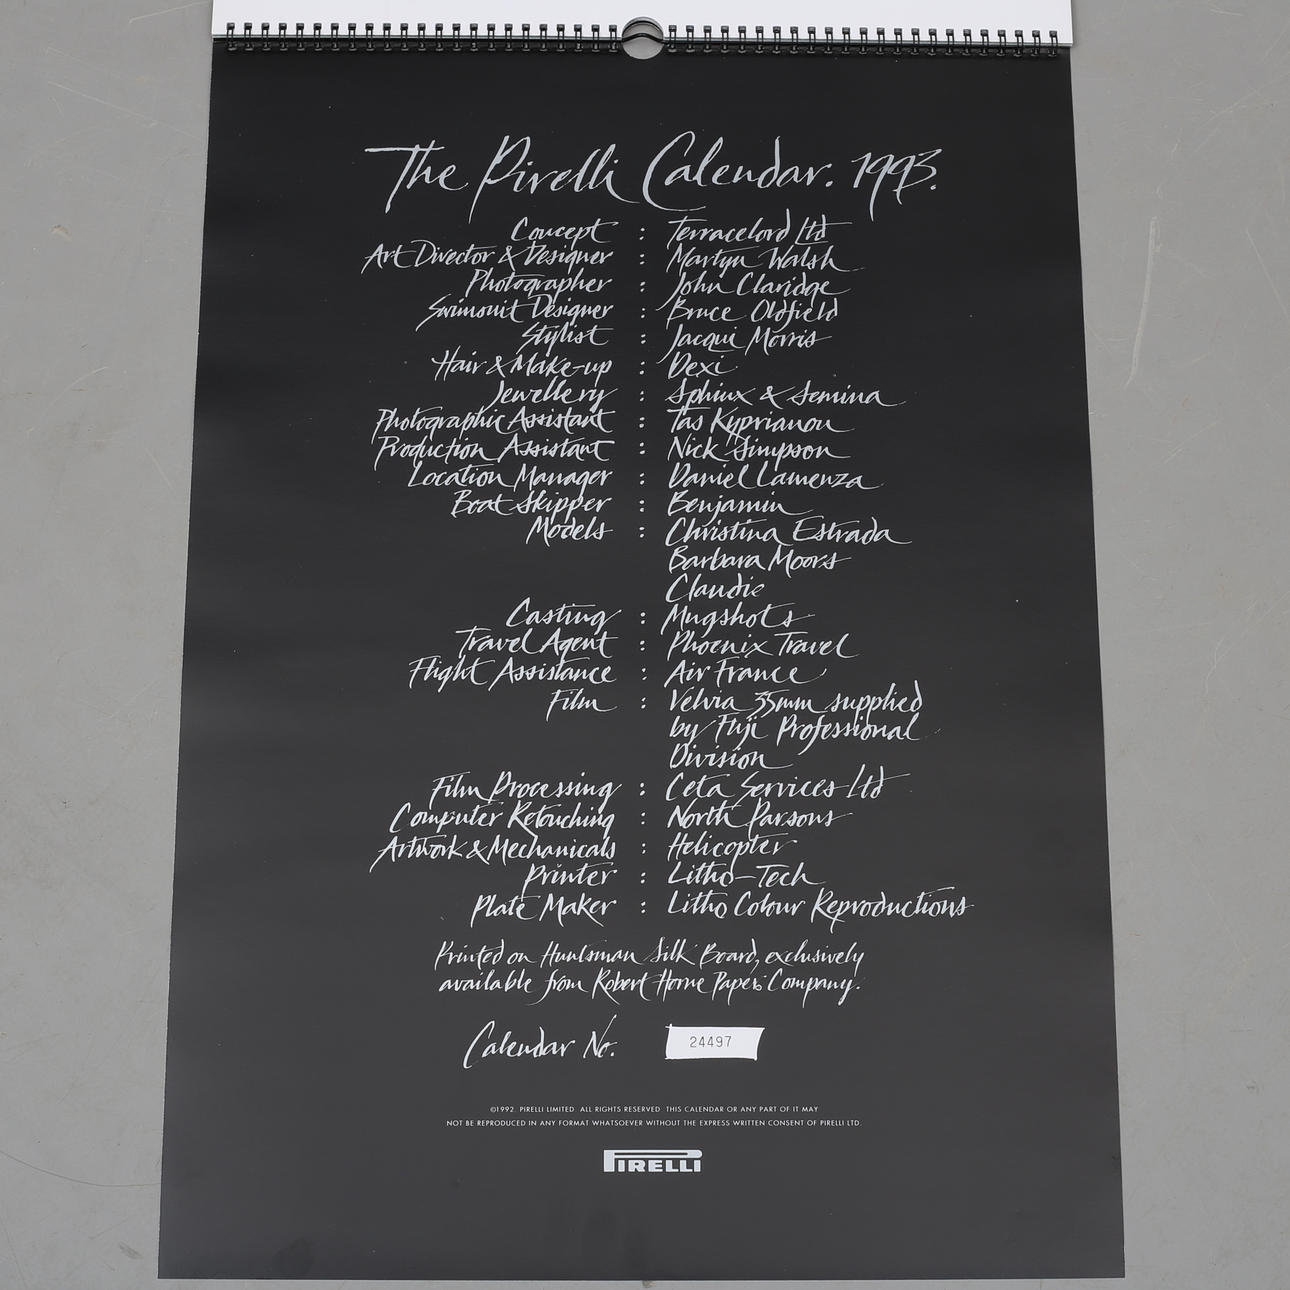 The Pirelli Calendar. 1993.
Concept : Terracelord Ltd
Art Director & Designer : Martyn Walsh
Photographer : John Claridge
Swimsuit Designer : Bruce Oldfield
Stylist : Jacqui Morris
Hair & Make-up : Dexi
Jewellery : Sphinx & Semina
Photographic Assistant : Tas Kyprianou
Production Assistant : Nick Simpson
Location Manager : Daniel Lamenza
Boat Skipper : Benjamin
Models : Christina Estrada
Barbara Moors
Claudie
Casting : Mugshots
Travel Agent : Phoenix Travel
Flight Assistance : Air France
Film : Velvia 35mm supplied
by Fuji Professional
Division
Film Processing : Ceta Services Ltd
Computer Retouching : North Parsons
Artwork & Mechanicals : Helicopter
Printer : Litho-Tech
Plate Maker : Litho Colour Reproductions
Printed on Huntsman Silk Board, exclusively
available from Robert Horne Paper Company.
Calendar No. 24497
©1992. PIRELLI LIMITED ALL RIGHTS RESERVED THIS CALENDAR OR ANY PART OF IT MAY
NOT BE REPRODUCED IN ANY FORMAT WHATSOEVER WITHOUT THE EXPRESS WRITTEN CONSENT OF PIRELLI LTD.
PIRELLI